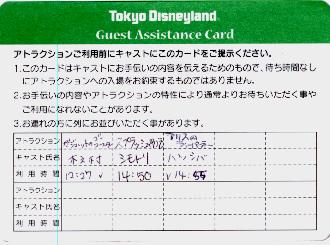 Tokyo Disneyland
Guest Assistance Card
アトラクションご利用前にキャストにこのカードをご提示ください。
1.このカードはキャストにお手伝いの内容を伝えるためのもので、待ち時間なしにアトラクションへの入場をお約束するものではありません。
2.お手伝いの内容やアトラクションの特性により通常よりお待ちいただく事やご利用になれないことがあります。
3.お連れの方に列にお並びいただく事があります。
アトラクション
キャスト氏名 シモトリ
利用時間 12:27 14:50 14:55
アトラクション
キャスト氏名
利用時間